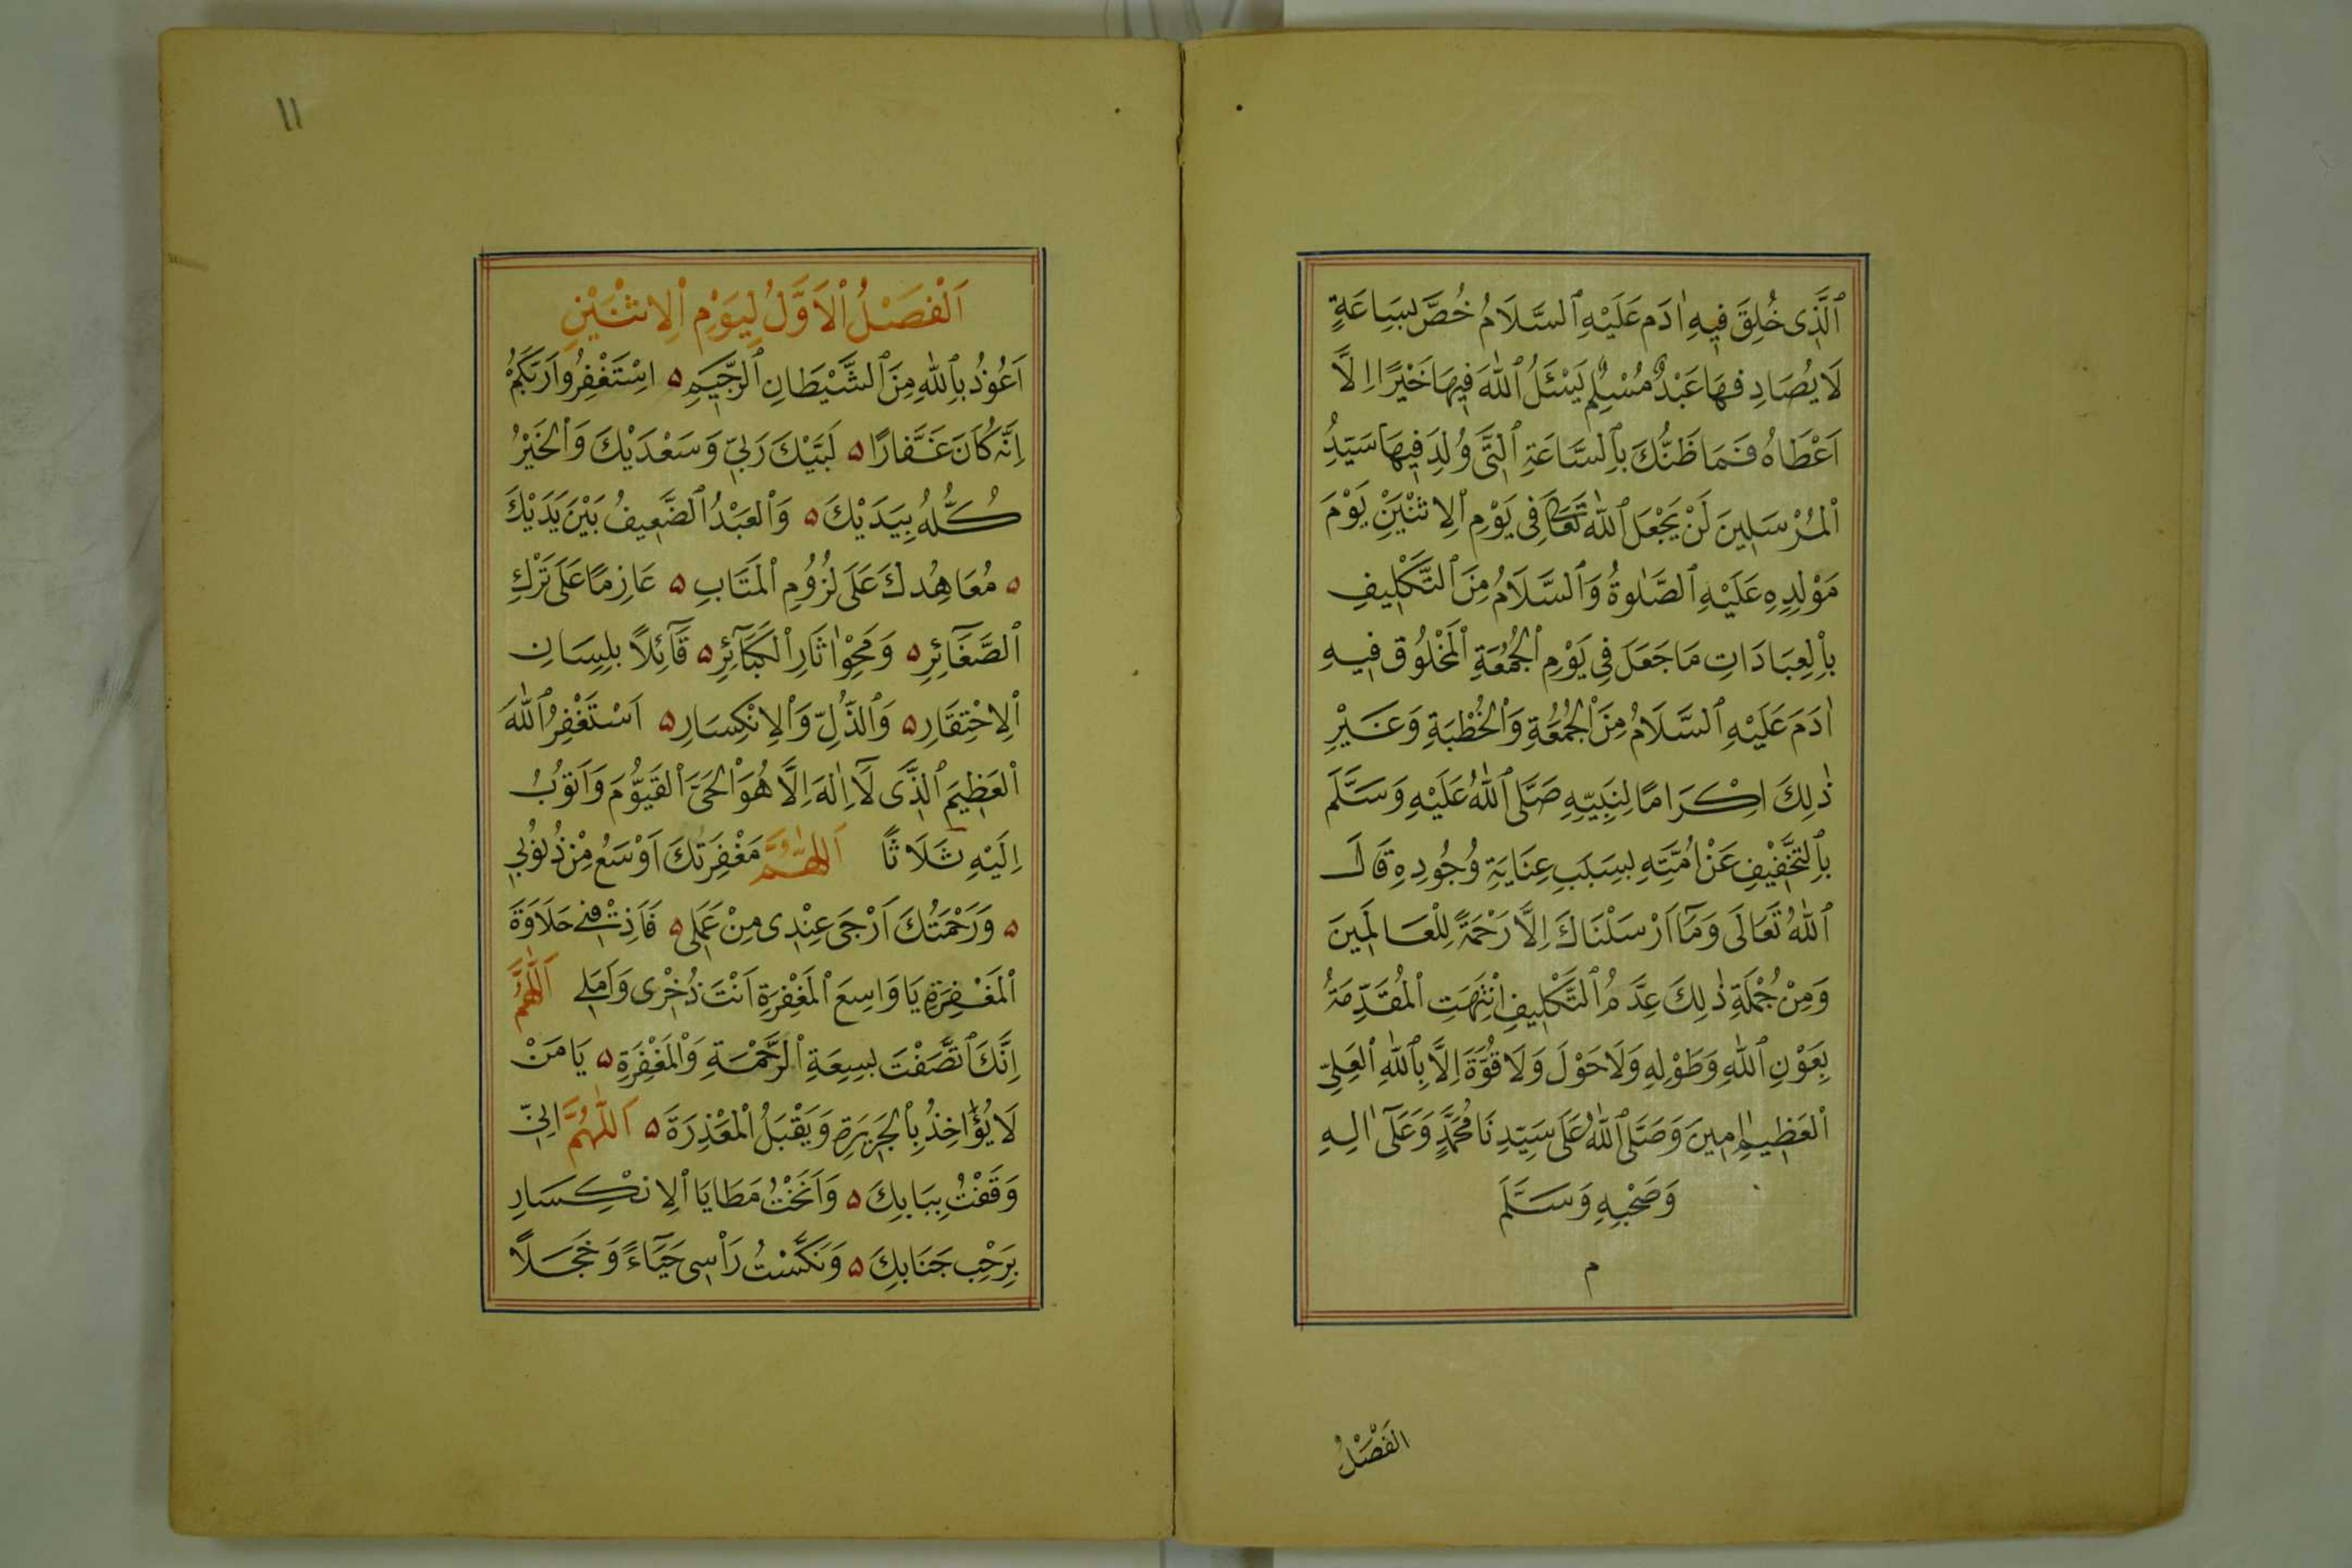 ٱلَّذِى خُلِقَ فِيهِ اٰدَمَ عَلَيْهِ ٱلسَّلَامُ خُصَّ بِسَاعَةٍ
لَا يُصَادِفهَا عَبْدٌ مُسْلِمٌ يَسْئَلُ ٱللّٰهَ فِيهَا خَيْرًا اِلَّا
اَعْطَاهُ فَمَا ظَنُّكَ بِٱلسَّاعَةِ ٱلَّتِى وُلِدَ فِيهَا سَيِّدُ
ٱلْمُرْسَلِينَ لَنْ يَجْعَلَ ٱللّٰهُ تَعَالَى فِى يَوْمِ ٱلِاثْنَيْنِ يَوْمَ
مَوْلِدِهِ عَلَيْهِ ٱلصَّلٰوةُ وَٱلسَّلَامُ مِنَ ٱلتَّكْلِيفِ
بِاْلعِبَادَاتِ مَا جَعَلَ فِى يَوْمِ ٱلْجُمُعَةِ ٱلْمَخْلُوقِ فِيهِ
اٰدَمَ عَلَيْهِ ٱلسَّلَامُ مِنَ ٱلْجُمُعَةِ وَٱلْخُطْبَةِ وَغَيْرِ
ذٰلِكَ اِكْرَامًا لِنَبِيِّهِ صَلَّى ٱللّٰهُ عَلَيْهِ وَسَلَّمَ
بِٱلتَّخْفِيْفِ عَنْ اُمَّتِهِ بِسَبَبِ عِنَايَةِ وُجُودِهِ قَالَ
ٱللّٰهُ تَعَالَى وَمَآ اَرْسَلْنَاكَ اِلَّا رَحْمَةً لِلْعَالَمِينَ
وَمِنْ جُمْلَةِ ذٰلِكَ عِدَّمُ ٱلتَّكْلِيفِ انْتَهَتِ ٱلْمُقَدِّمَةُ
بِعَوْنِ ٱللّٰهِ وَطَوْلِهِ وَلَا حَوْلَ وَلَا قُوَّةَ اِلَّا بِٱللّٰهِ ٱلْعَلِىِّ
ٱلْعَظِيمِ اٰمِينَ وَصَلَّى ٱللّٰهُ عَلَى سَيِّدِنَا مُحَمَّدٍ وَعَلَىٓ اٰلِهِ
وَصَحْبِهِ وَسَلَّمَ
م
الْفَصْلُ
١١
اَلْفَصْلُ ٱلْاَوَّلُ لِيَوْمِ ٱلِاثْنَيْنِ
اَعُوذُ بِٱللّٰهِ مِنَ ٱلشَّيْطَانِ ٱلرَّجِيمِ ۵ اسْتَغْفِرُوا رَبَّكُمْ
اِنَّهُ كَانَ غَفَّارًا ۵ لَبَّيْكَ رَبِّى وَسَعْدَيْكَ وَٱلْخَيْرُ
كُلُّهُ بِيَدَيْكَ ۵ وَٱلْعَبْدُ ٱلضَّعِيفُ بَيْنَ يَدَيْكَ
۵ مُعَاهِدُكَ عَلَى لُزُوْمِ ٱلْمَتَابِ ۵ عَازِمًا عَلَى تَرْكِ
ٱلصَّغَآئِرِ ۵ وَمَحْوِ اٰثَارِ ٱلْكَبَآئِرِ ۵ قَآئِلًا بِلِسَانِ
ٱلِاحْتِقَارِ ۵ وَٱلذُّلِّ وَٱلِانْكِسَارِ ۵ اَسْتَغْفِرُ ٱللّٰهَ
ٱلْعَظِيمَ ٱلَّذِى لَآ اِلٰهَ اِلَّا هُوَ ٱلْحَىَّ ٱلْقَيُّومَ وَاَتُوبُ
اِلَيْهِ ثَلَاثًا اَللّٰهُمَّ مَغْفِرَتُكَ اَوْسَعُ مِنْ ذُنُوْبِى
۵ وَرَحْمَتُكَ اَرْجَى عِنْدِى مِنْ عَمَلِى ۵ فَاَذِقْنِى حَلَاوَةَ
ٱلْمَغْفِرَةِ يَا وَاسِعَ ٱلْمَغْفِرَةِ اَنْتَ ذُخْرِى وَاَمَلِى اَللّٰهُمَّ
اِنَّكَ ٱتَّصَفْتَ بِسِعَةِ ٱلرَّحْمَةِ وَٱلْمَغْفِرَةِ ۵ يَا مَنْ
لَا يُؤَاخِذُ بِٱلْجَرِيرَةِ وَيَقْبَلُ ٱلْمَعْذِرَةَ ۵ اَللّٰهُمَّ اِنِّى
وَقَفْتُ بِبَابِكَ ۵ وَاَنَخْتُ مَطَايَا ٱلِانْكِسَارِ
بِرَحْبِ جَنَابِكَ ۵ وَنَكَّسْتُ رَاْسِى حَيَآءً وَخَجَلًا